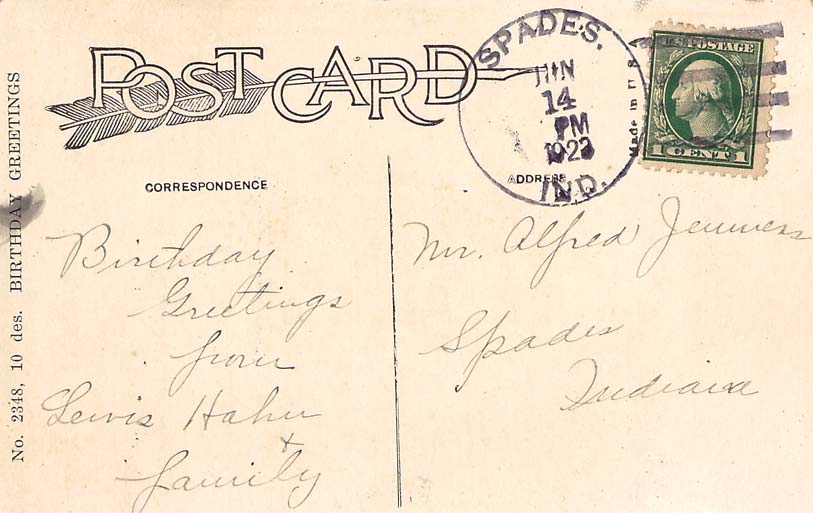 POST CARD
SPADES.
JUN
14
PM
1923
IND.
Made in U. S. A.
U.S. POSTAGE
1 CENT 1
CORRESPONDENCE
ADDRESS
Birthday
Greetings
from
Lewis Hahn
+
family
Mr. Alfred
Spades
Indiana
No. 2348, 10 des. BIRTHDAY GREETINGS